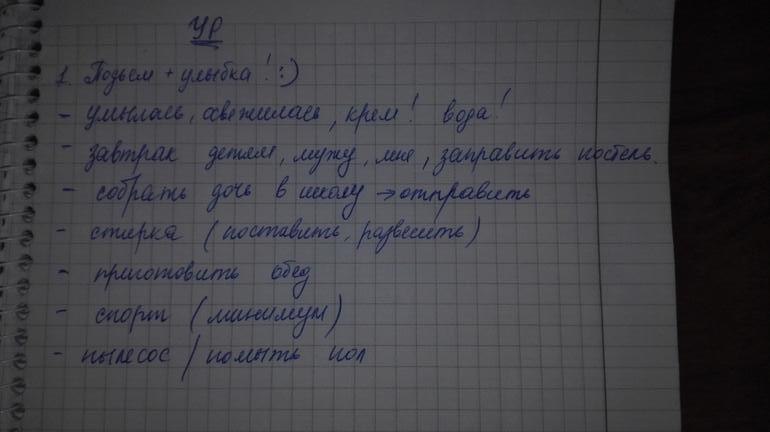 УР
1. Подъем + улыбка! :)
- умылась, освежилась, крем! вода!
- завтрак детям, мужу, мне, заправить постель.
- собрать дочь в школу → отправить
- стирка (поставить, развесить)
- приготовить обед
- спорт (минимум)
- пылесос / помыть пол